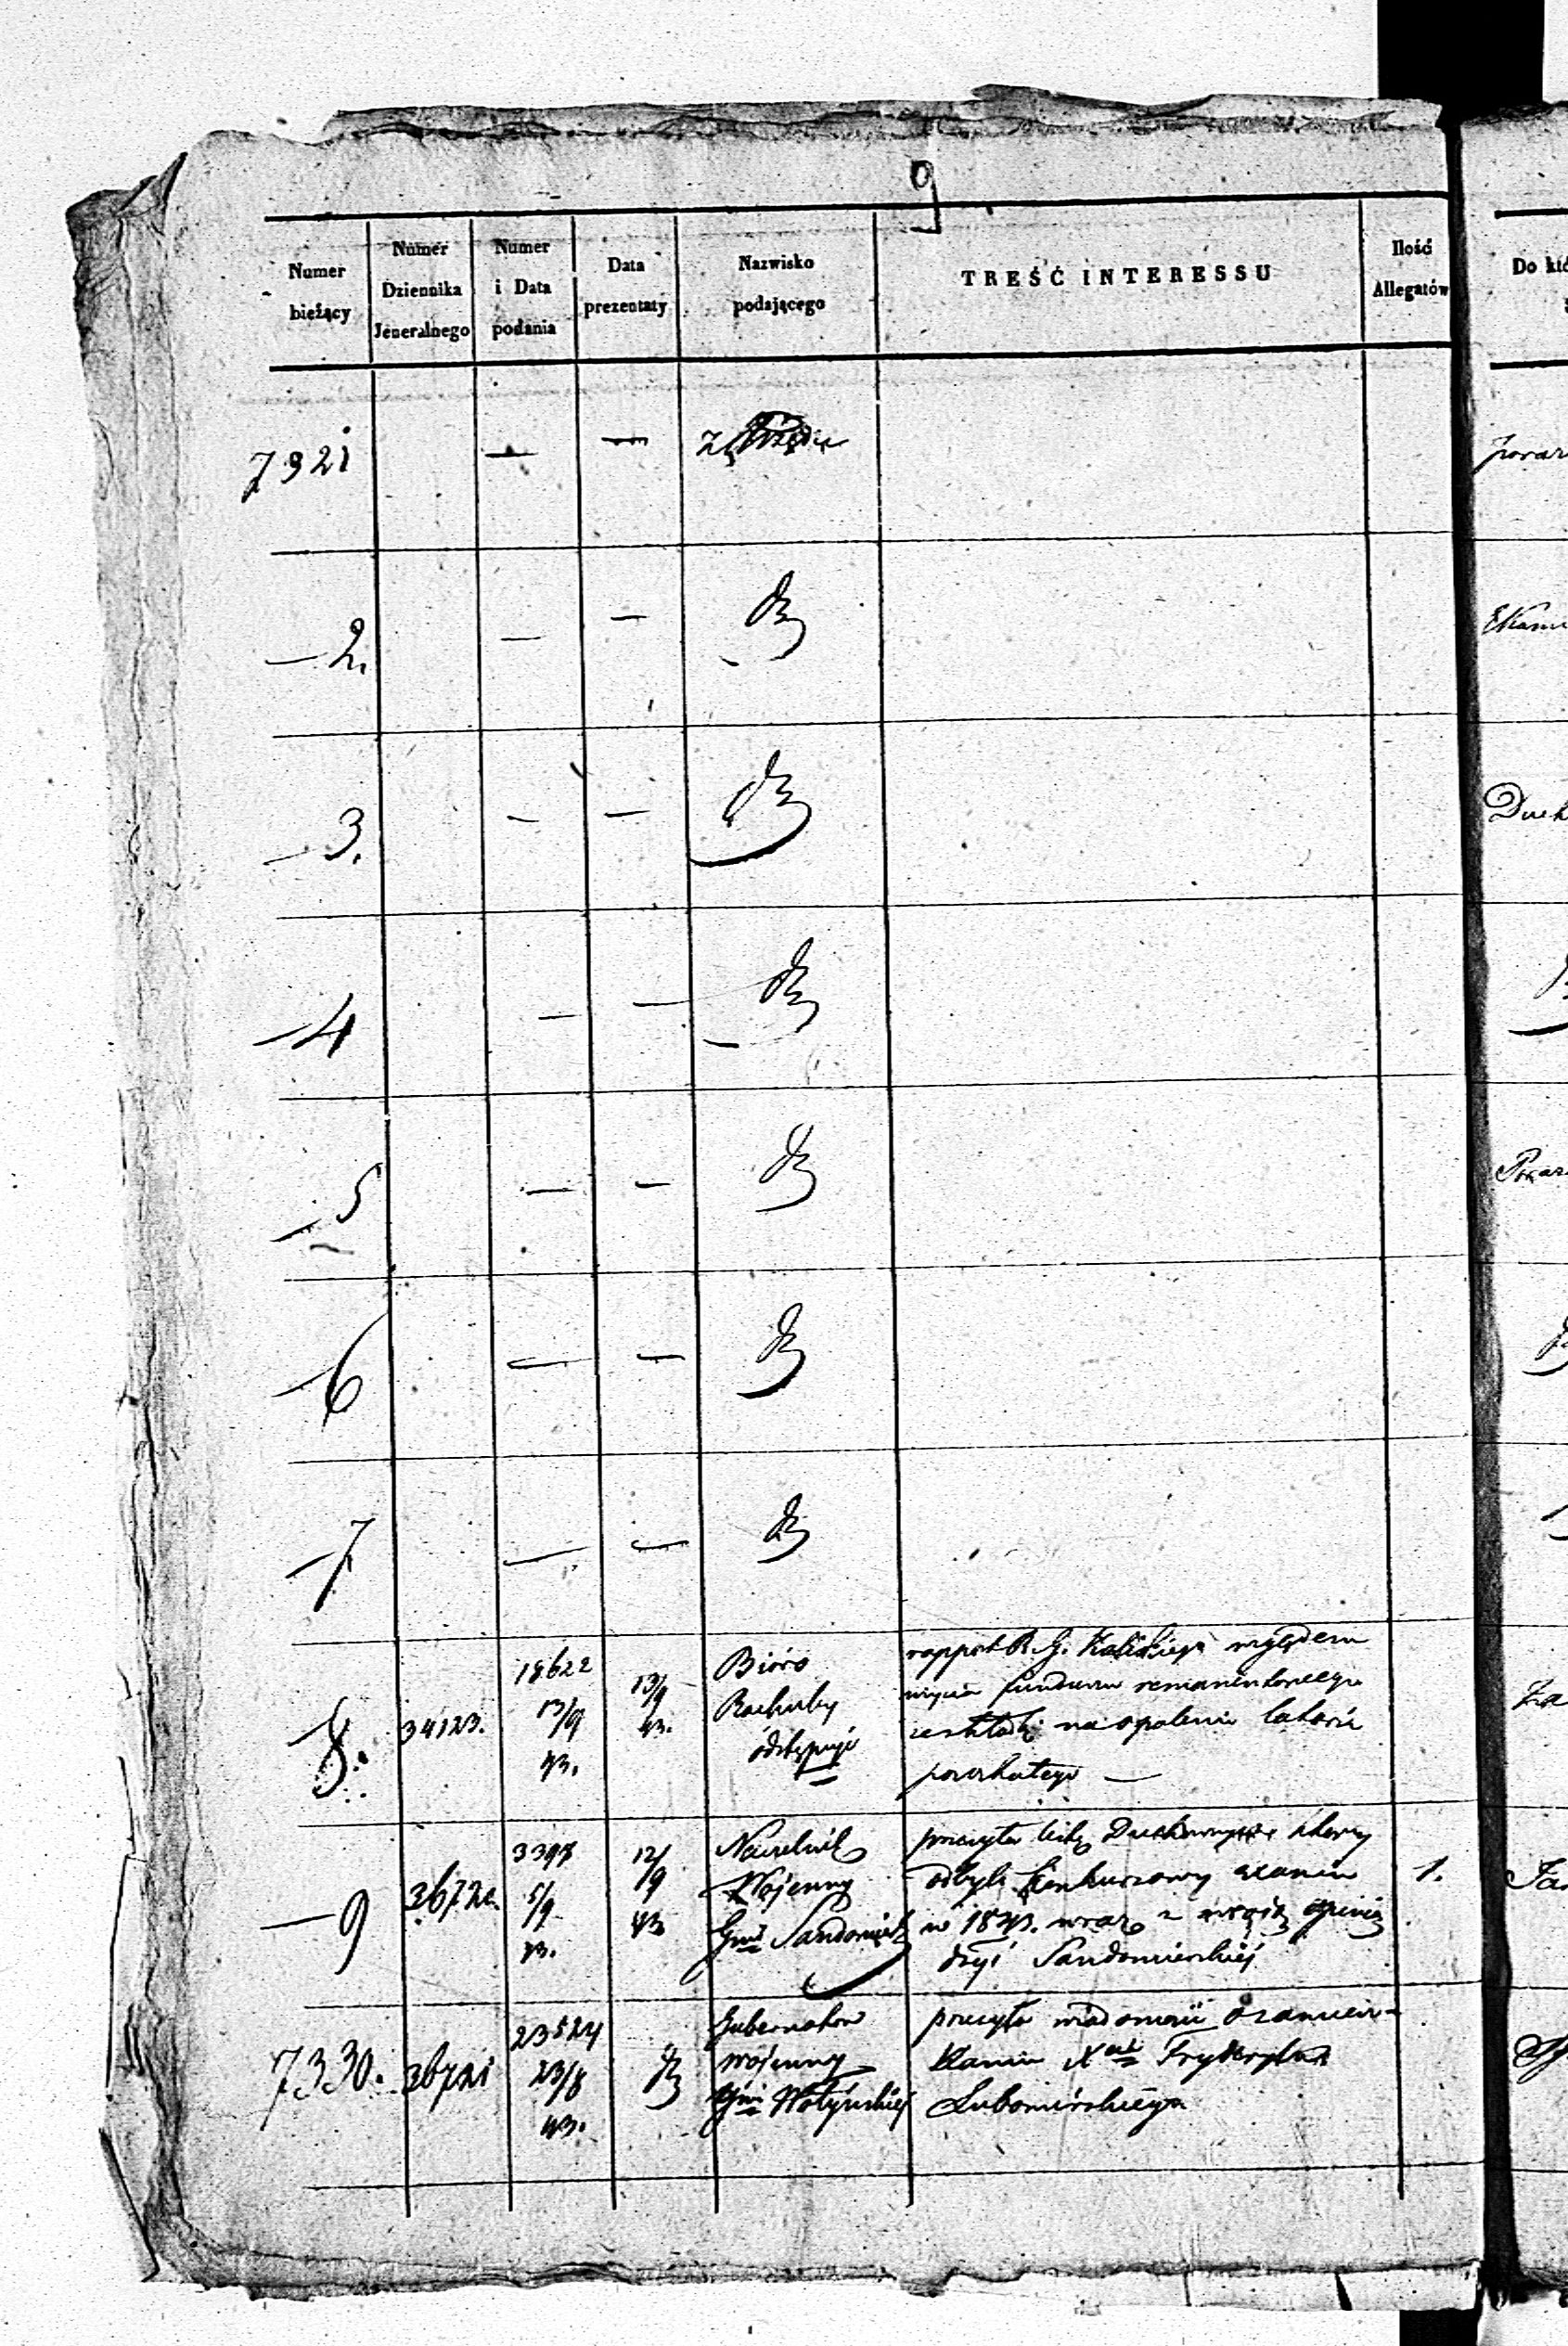 9
Numer bieżący
Numer Dziennika Jeneralnego
Numer i Data podania
Data prezentaty
Nazwisko podającego
TREŚĆ INTERESSU
Ilość Allegatów
Do któ
7321 — — z Urzędu
— 2. — — dto
— 3. — — dto
— 4 — — dto
— 5 — — dto
— 6 — — dto
— 7 — — dto
8. 34123. 18622 13/9 43. 13/9 43.
Bióro
Rachuby
odstępuje
rapport R. G. Kaliskiego względem
użycia funduszu remanentowego
na opalenie
— 9 36720. 3398 5/9 43. 12/9 43
Naczelnik
Wojenny
Gnii Sandomiersk
przesyła listę Duchownych którzy
odbyli konkursowy examin
w 1843. wraz z swoją opinią
dyi Sandomierskiej
1.
7330. 36721 23524 23/8 43. dto
Gubernator
wojenny
Gnii Wołyńskiej
przesyła wiadomość o zamiesz-
kaniu Xcia Fryderyka
Lubomirskiego